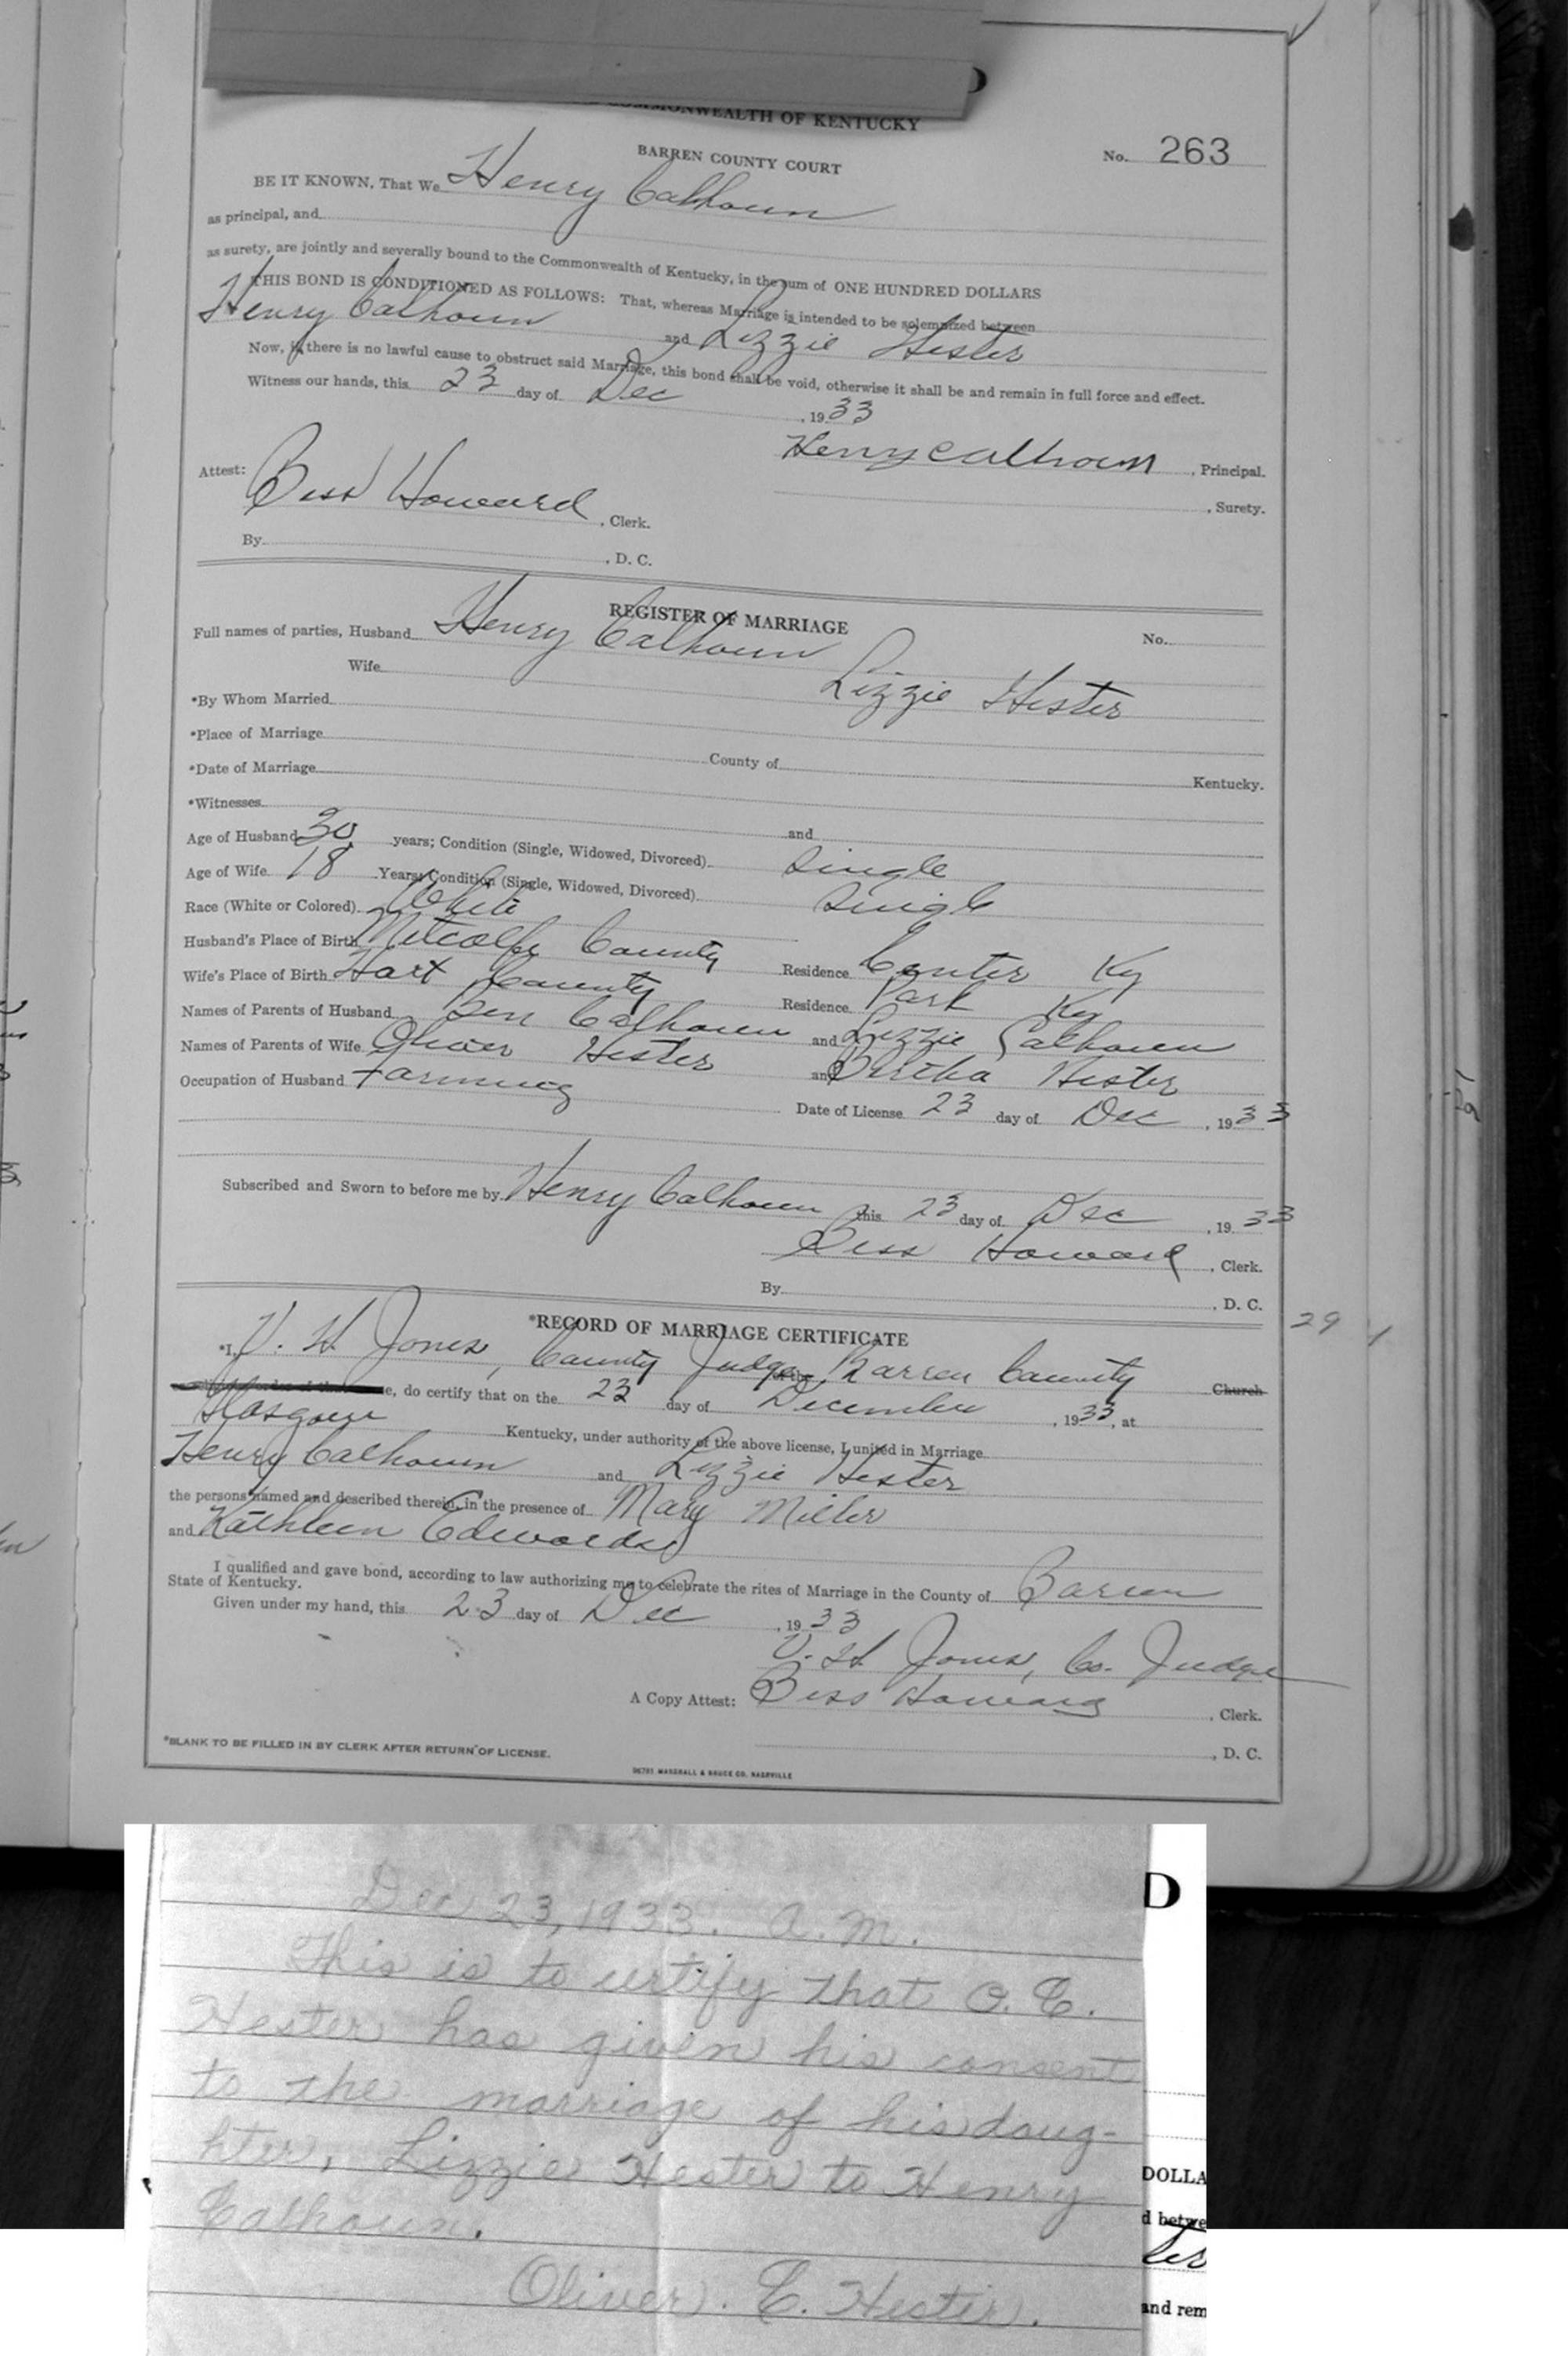 COMMONWEALTH OF KENTUCKY
BARREN COUNTY COURT
No. 263
BE IT KNOWN, That We Henry Calhoun
as principal, and
as surety, are jointly and severally bound to the Commonwealth of Kentucky, in the sum of ONE HUNDRED DOLLARS
THIS BOND IS CONDITIONED AS FOLLOWS: That, whereas Marriage is intended to be solemnized between
Henry Calhoun and Lizzie Hester
Now, if there is no lawful cause to obstruct said Marriage, this bond shall be void, otherwise it shall be and remain in full force and effect.
Witness our hands, this 23 day of Dec, 1933
Henry Calhoun, Principal.
Attest: Bess Howard, Clerk.
, Surety.
By , D. C.
REGISTER OF MARRIAGE
No.
Full names of parties, Husband Henry Calhoun
Wife Lizzie Hester
*By Whom Married
*Place of Marriage County of Kentucky.
*Date of Marriage
*Witnesses and
Age of Husband 30 years; Condition (Single, Widowed, Divorced) Single
Age of Wife 18 Years; Condition (Single, Widowed, Divorced) Single
Race (White or Colored) White
Husband's Place of Birth Metcalfe County Residence Center Ky
Wife's Place of Birth Hart County Residence Park Ky
Names of Parents of Husband Ben Calhoun and Lizzie Calhoun
Names of Parents of Wife Oliver Hester and Bertha Hester
Occupation of Husband Farming
Date of License 23 day of Dec, 1933
Subscribed and Sworn to before me by Henry Calhoun this 23 day of Dec, 1933
Bess Howard, Clerk.
By , D. C.
29
*RECORD OF MARRIAGE CERTIFICATE
*I, V. H. Jones, County Judge Barren County Church
e, do certify that on the 23 day of December, 1933, at
Glasgow Kentucky, under authority of the above license, I united in Marriage
Henry Calhoun and Lizzie Hester
the persons named and described therein, in the presence of Mary Miller
and Kathleen Edwards
I qualified and gave bond, according to law authorizing me to celebrate the rites of Marriage in the County of Barren
State of Kentucky.
Given under my hand, this 23 day of Dec, 1933
V. H. Jones, Co. Judge
A Copy Attest: Bess Howard, Clerk.
, D. C.
*BLANK TO BE FILLED IN BY CLERK AFTER RETURN OF LICENSE.
MARSHALL & BRUCE CO. NASHVILLE
D
Dec 23, 1933. A.M.
This is to certify that O. C.
Hester has given his consent
to the marriage of his daug-
hter, Lizzie Hester to Henry
Calhoun.
Oliver. C. Hester.
DOLLA
d betwe
ter
and rem